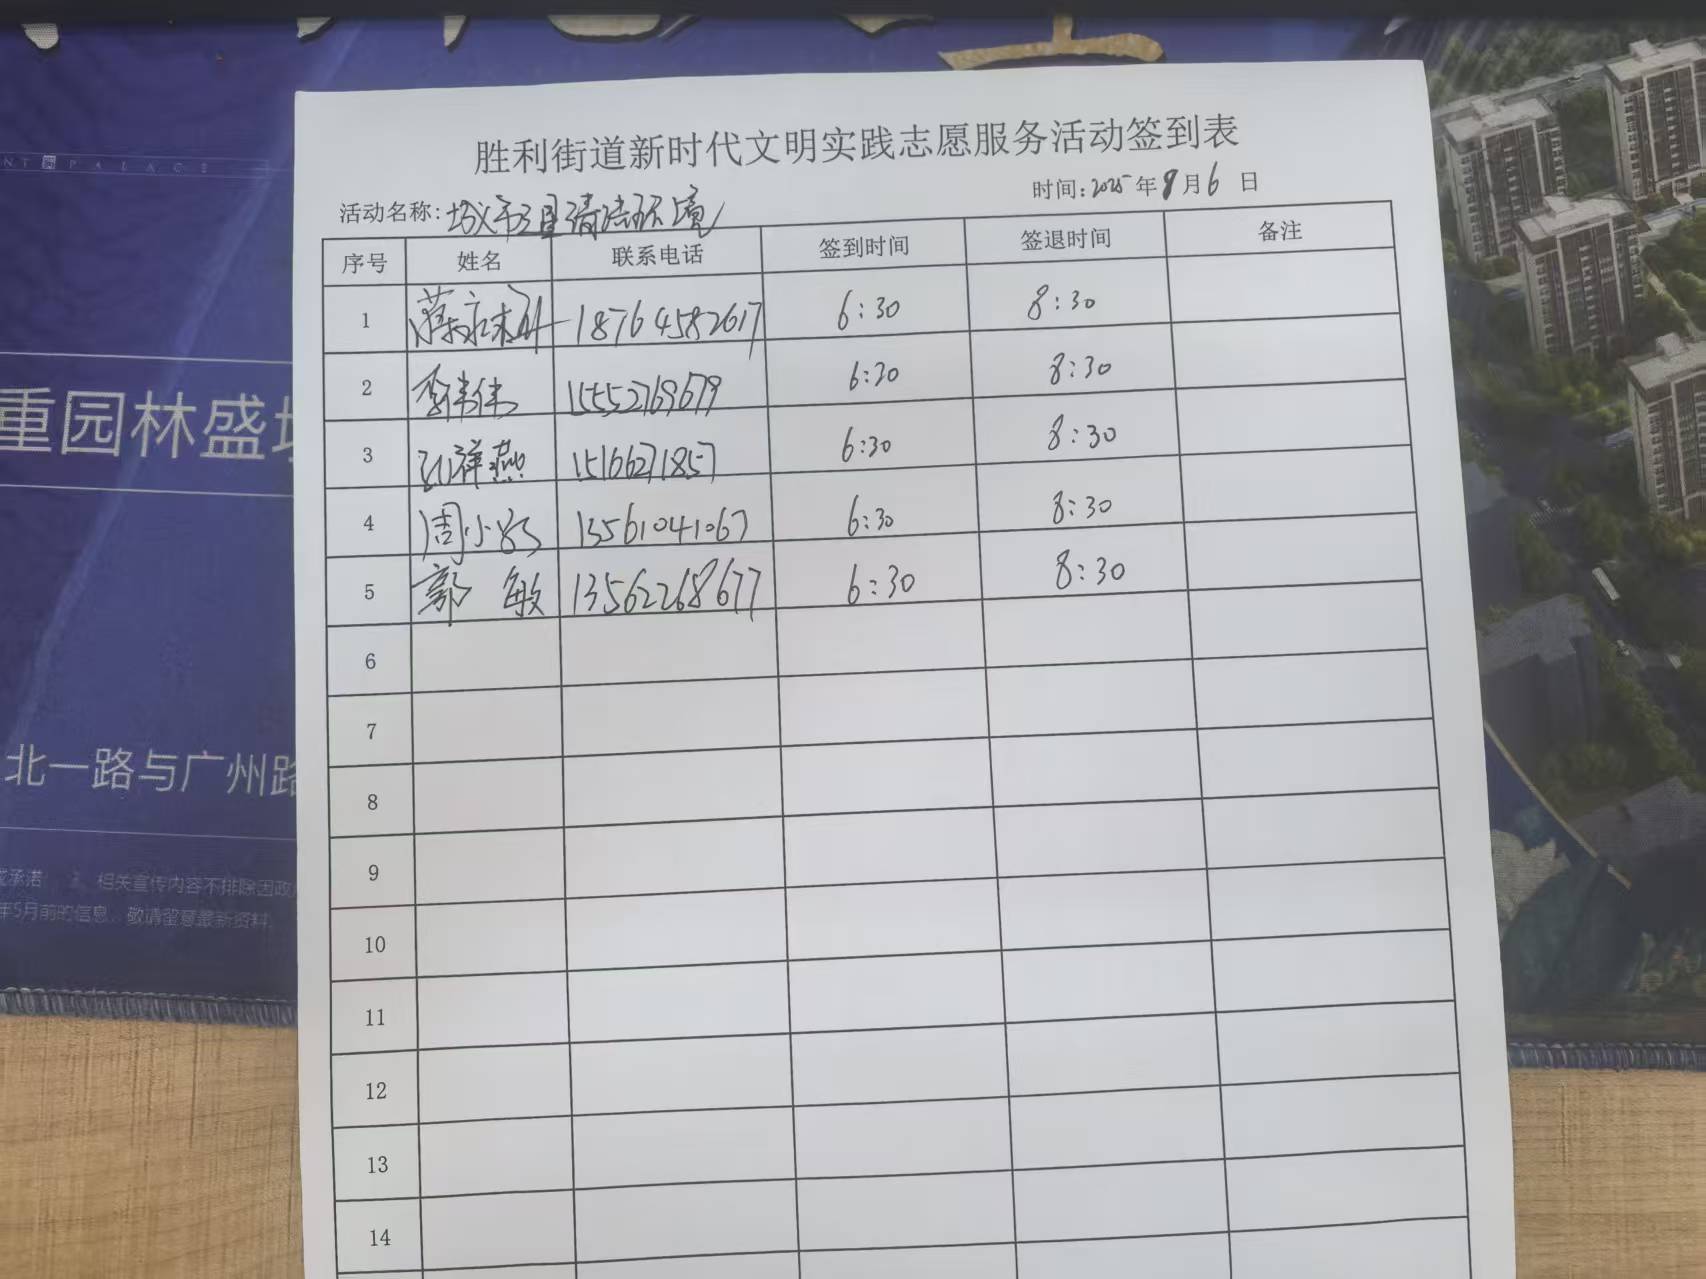 NT PALACE
重园林盛
北一路与广州路
承诺 相关宣传内容不排除因政
年5月前的信息，敬请留意最新资料。
胜利街道新时代文明实践志愿服务活动签到表
活动名称: 清洁环境 时间:2025年8月6日
序号 姓名 联系电话 签到时间 签退时间 备注
1 18764582617 6:30 8:30
2 李伟伟 15552769679 6:30 8:30
3 祥燕 15166271857 6:30 8:30
4 周小 13561041067 6:30 8:30
5 郭敏 13562268677 6:30 8:30
6
7
8
9
10
11
12
13
14